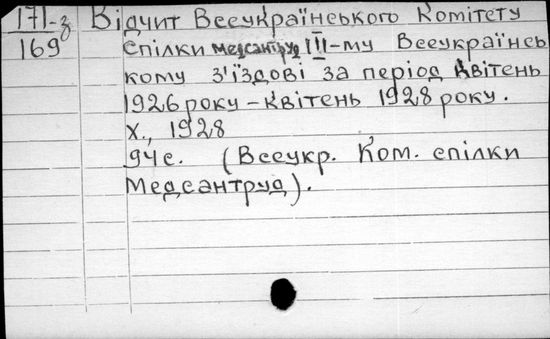 171-з Відчит Всеукраїнського Комітету
169 спілки медсантруд III-му Всеукраїнсь
кому з'їздові за період квітень
1926 року – квітень 1928 року.
Х., 1928
94 с. (Всеукр. Ком. спілки
Медсантруд).